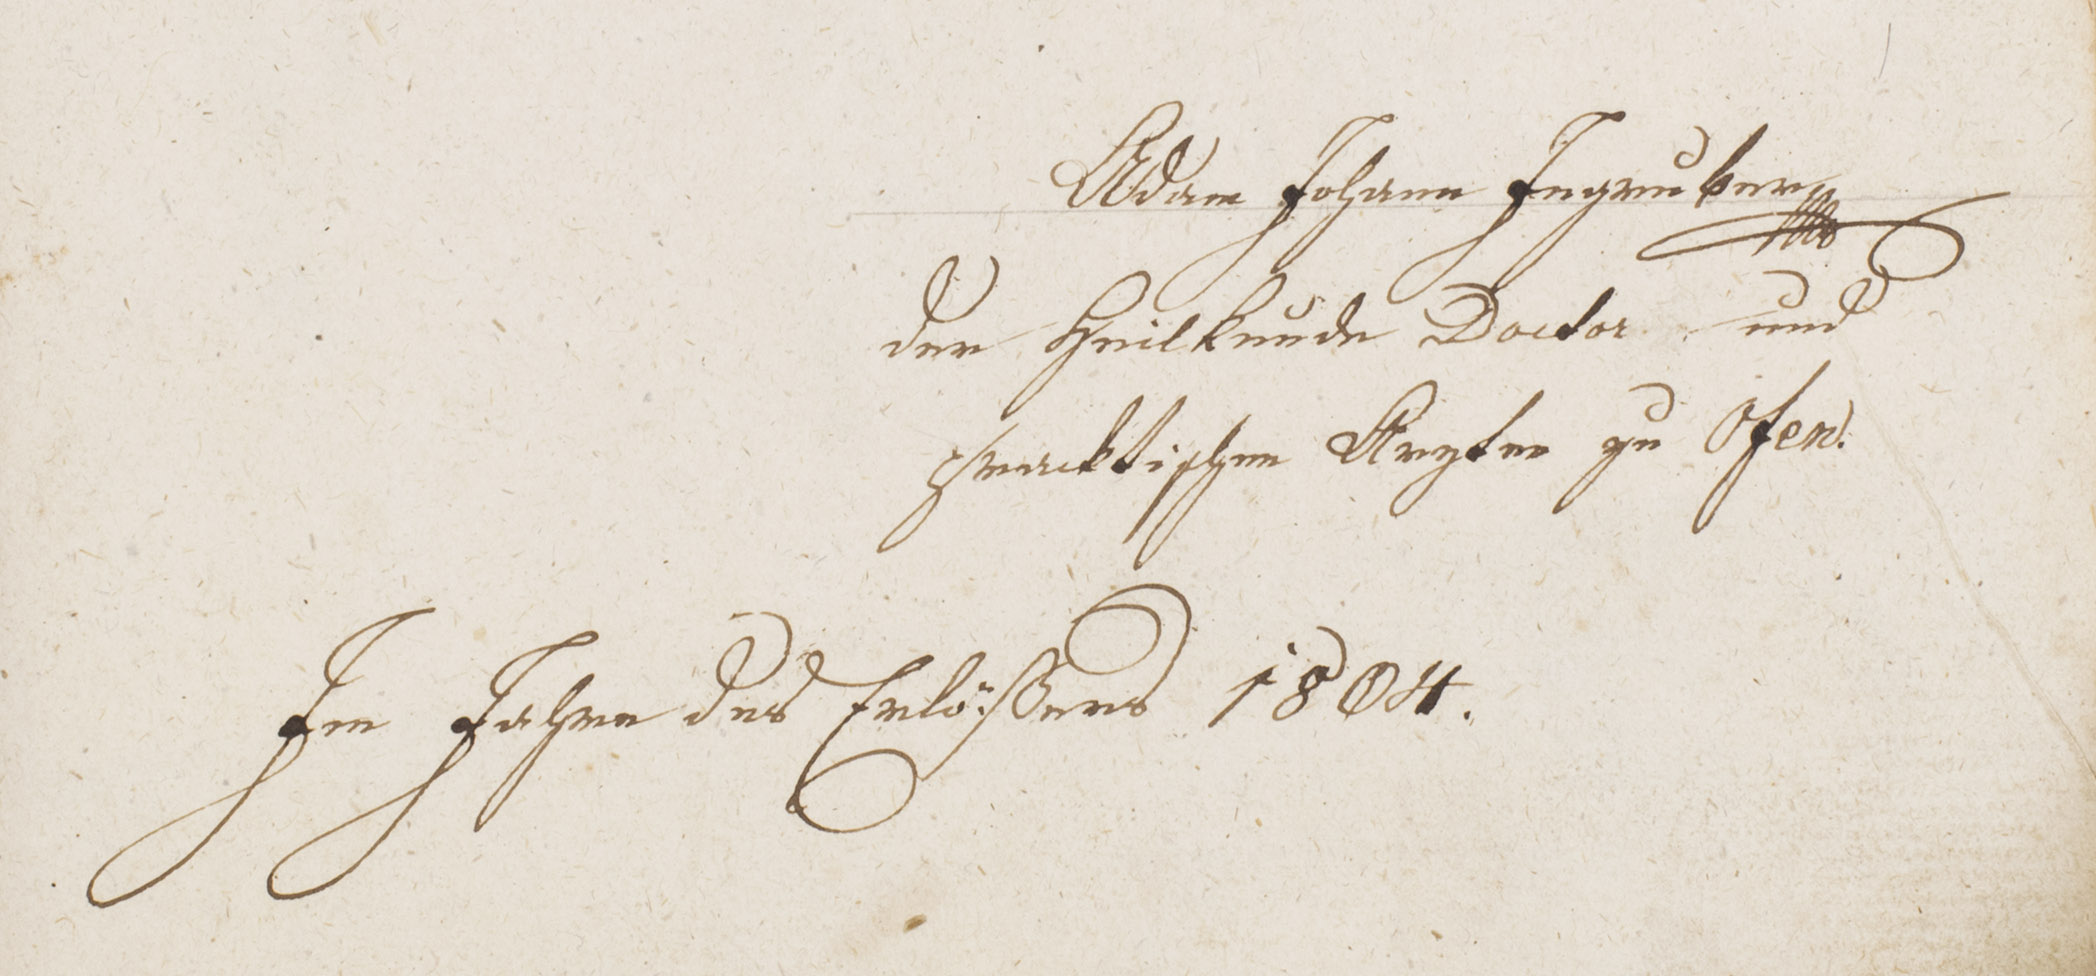 Adam Johann Ingruber
der Heilkunde Doctor und
practischen Arzten zu Ofen.
Im Jahre des Erlößers 1804.